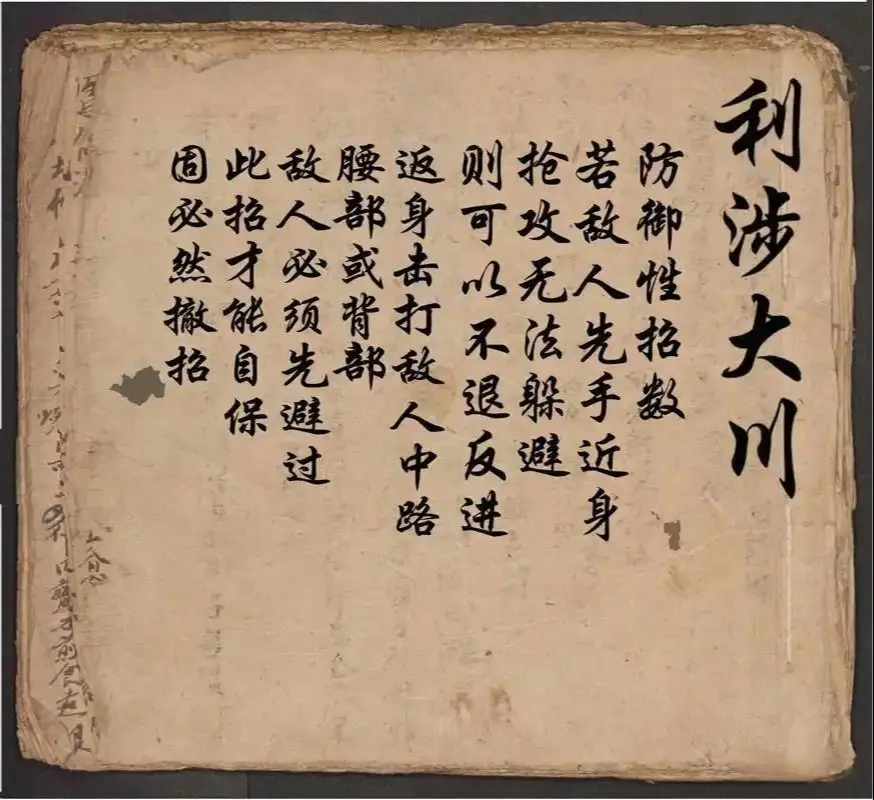 利涉大川
防御性招数
若敌人先手近身
抢攻无法躲避
则可以不退反进
返身击打敌人中路
腰部或背部
敌人必须先避过
此招才能自保
固必然撤招